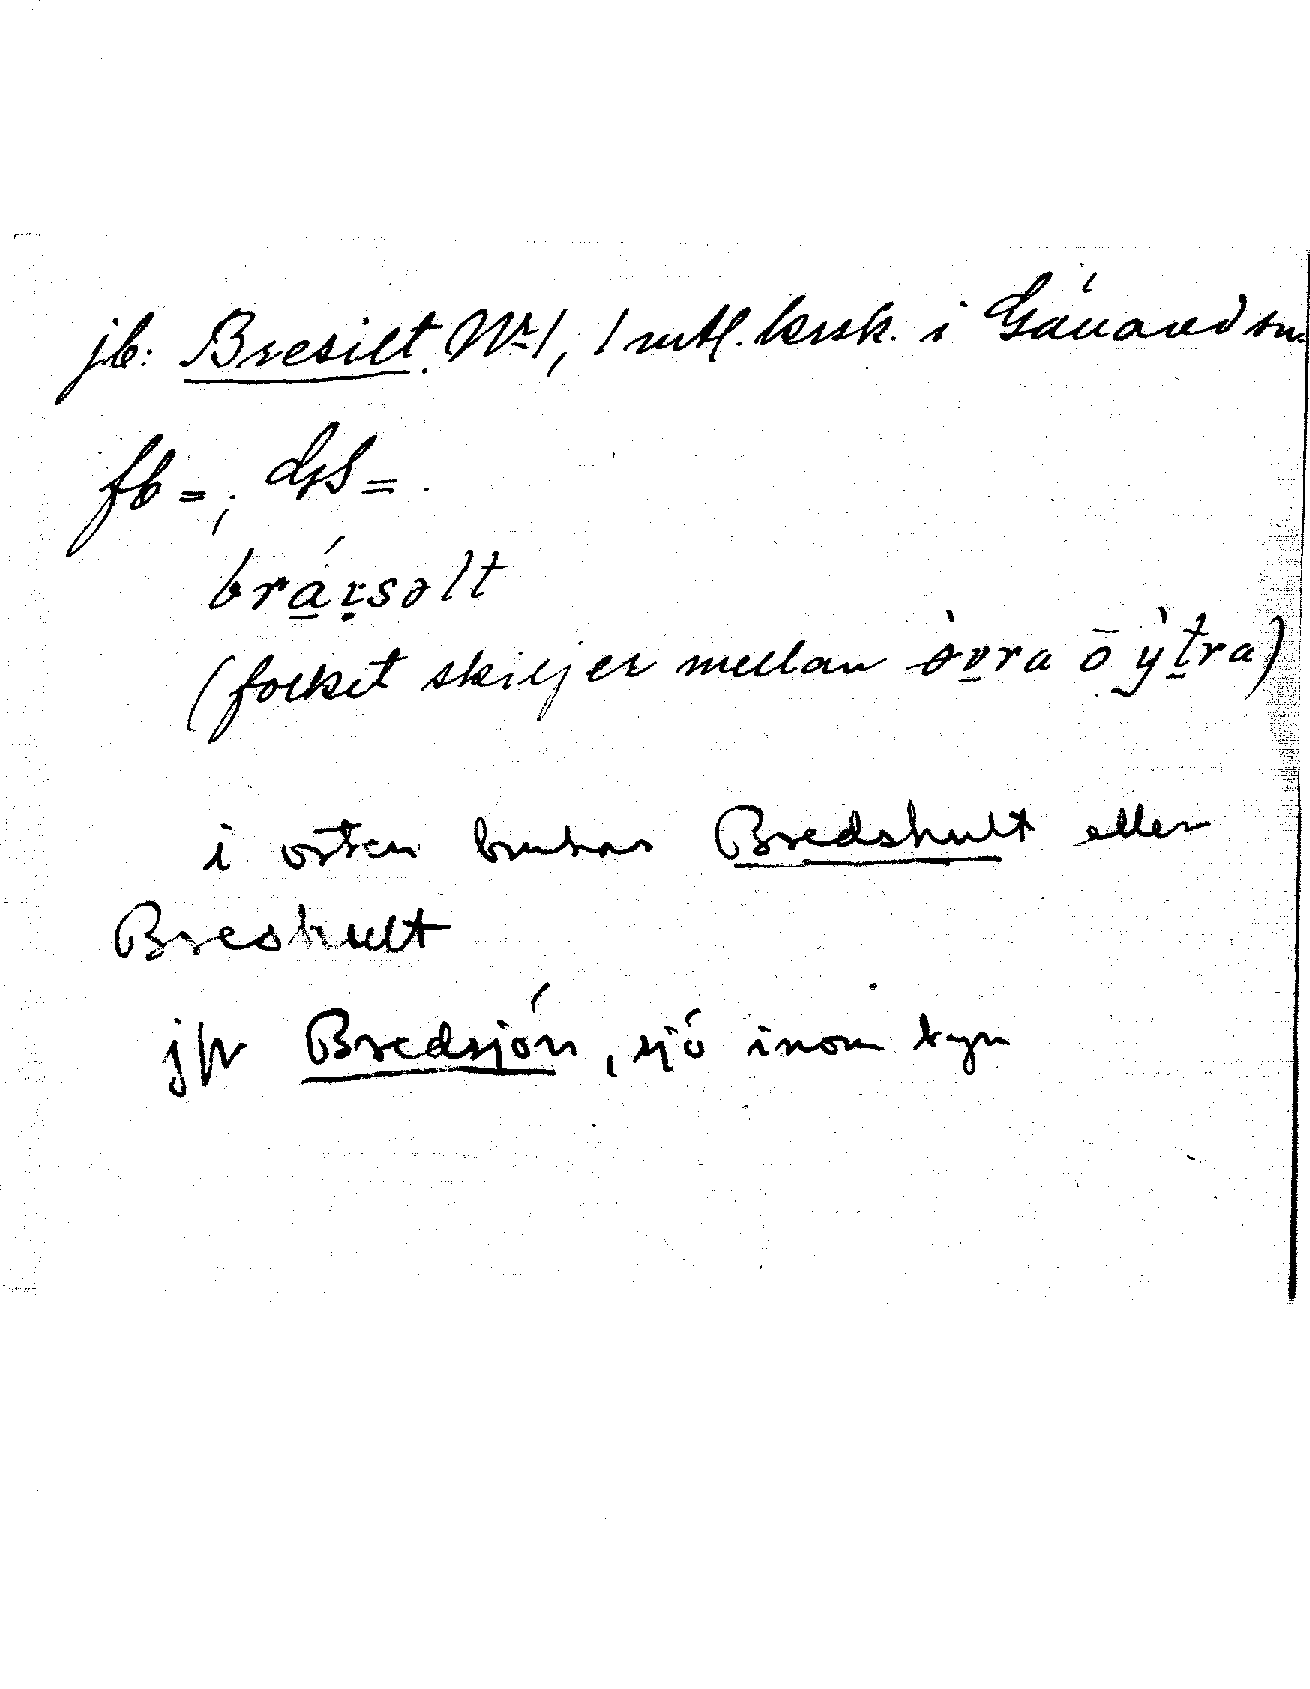 jb: Bresilt. Nr 1, 1 mtl. krsk. i Gånared sn.
fb = ; GS = .
brá̱ṛsəlt
(folket skiljer mellan òv̱ra ō ỳṯra)
i orten brukas Bredshult eller
Breshult
jfr Bredsjön, sjö inom byn